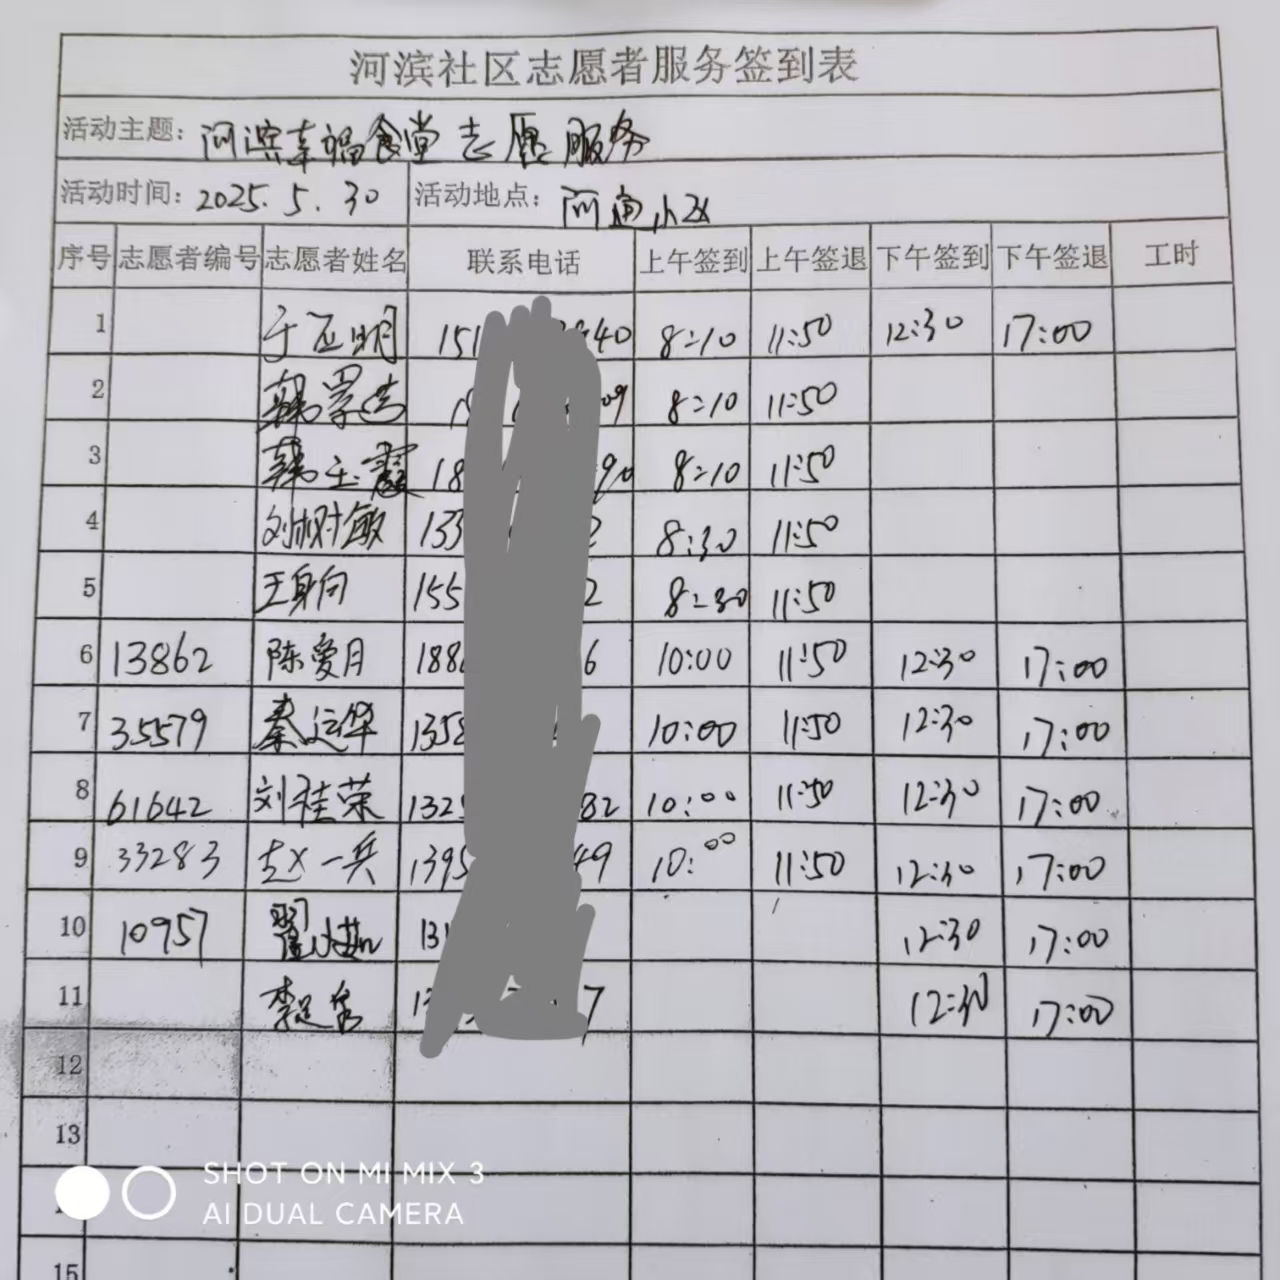 河滨社区志愿者服务签到表
活动主题：河滨幸福食堂志愿服务
活动时间：2025.5.30 活动地点：河通小区
序号 志愿者编号 志愿者姓名 联系电话 上午签到 上午签退 下午签到 下午签退 工时
1 于正明 151 40 8:10 11:50 12:30 17:00
2 韩 09 8:10 11:50
3 韩玉霞 18 90 8:10 11:50
4 刘树敏 133 2 8:30 11:50
5 王身向 155 2 8:30 11:50
6 13862 陈爱月 188 6 10:00 11:50 12:30 17:00
7 35579 秦运华 1358 10:00 11:50 12:30 17:00
8 61642 刘桂荣 132 82 10:00 11:50 12:30 17:00
9 33283 赵一兵 1395 49 10:00 11:50 12:30 17:00
10 10957 翟 12:30 17:00
11 李 7 12:30 17:00
12
13
15
SHOT ON MI MIX 3
AI DUAL CAMERA